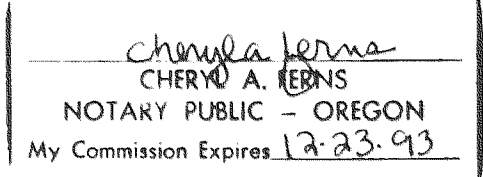 Cheryl a Ferns
CHERYL A. FERNS
NOTARY PUBLIC – OREGON
My Commission Expires 12.23.93